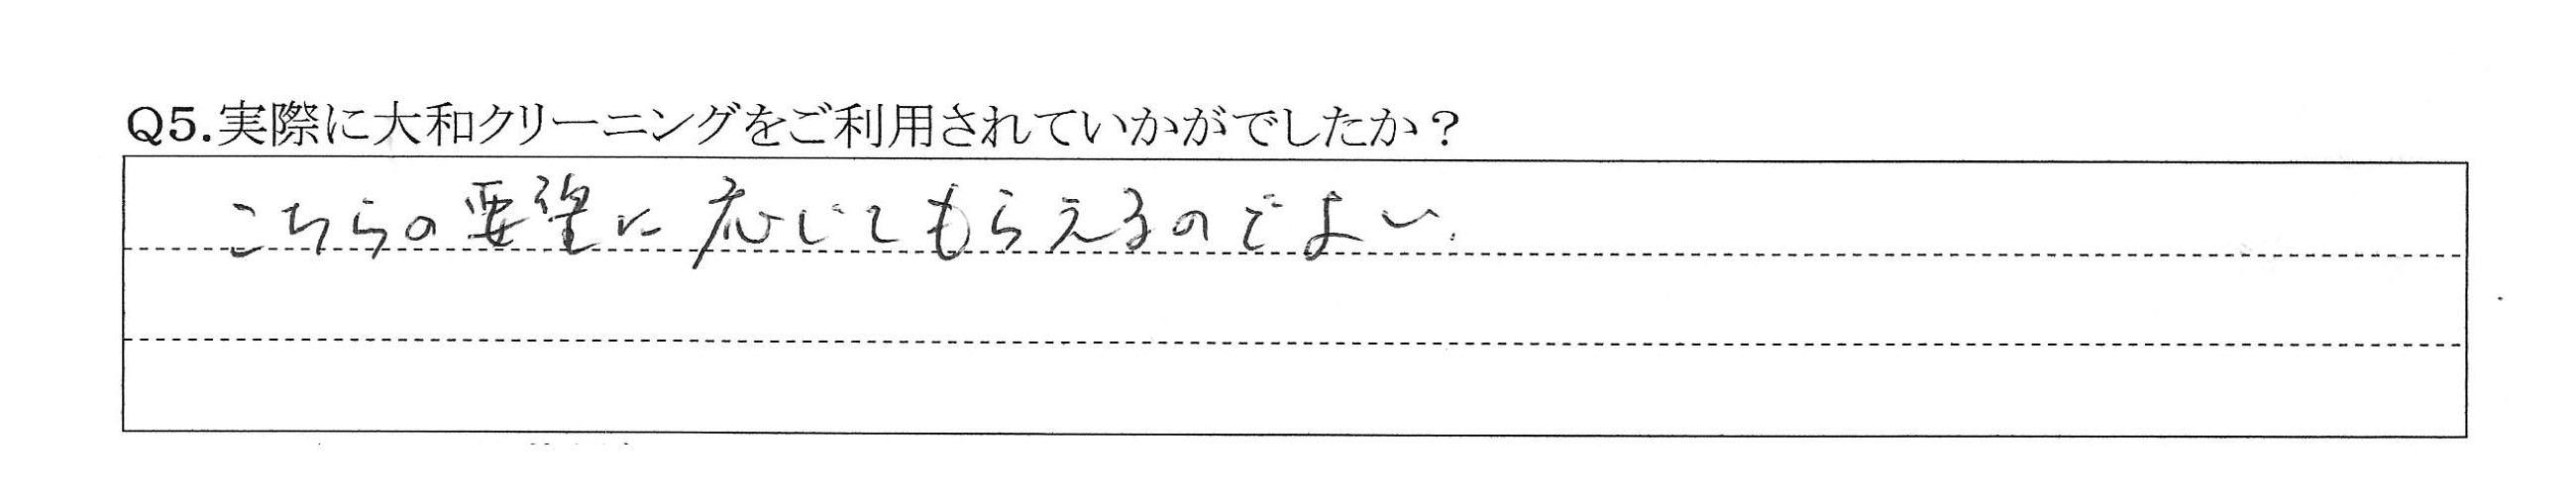 Q5.実際に大和クリーニングをご利用されていかがでしたか？
こちらの要望に応じてもらえるのでよい.